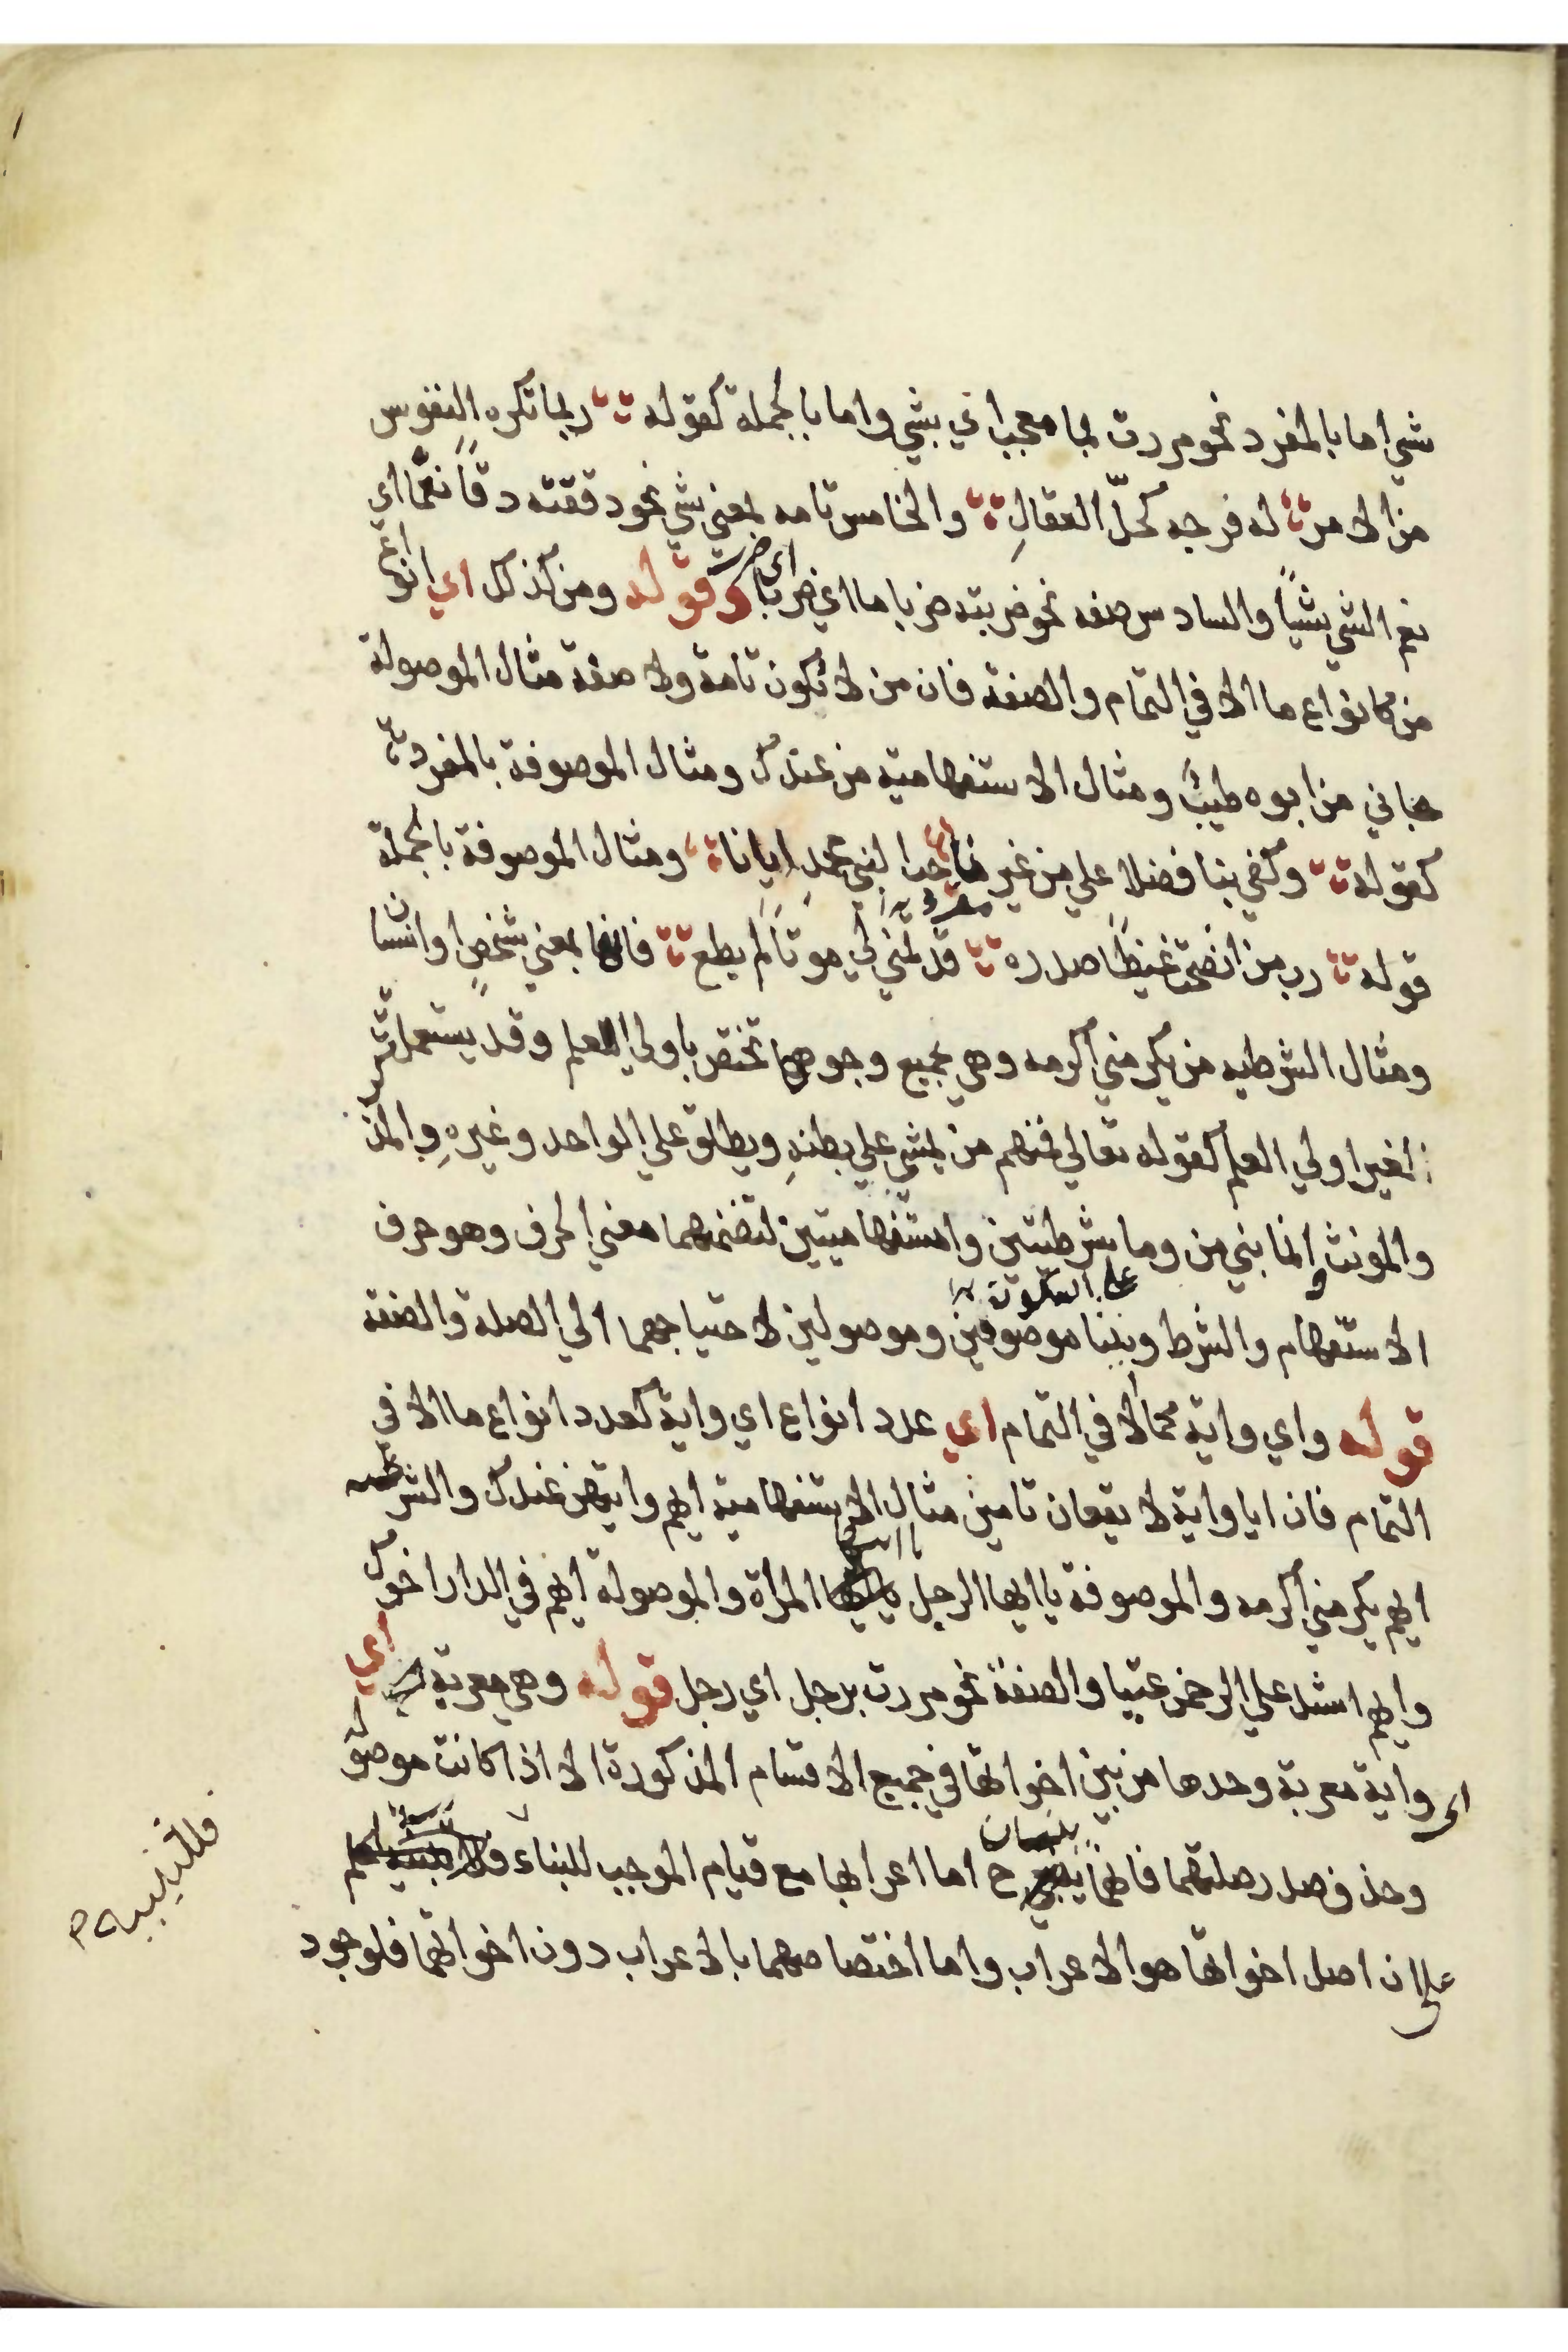 شي اما بالمفرد نحو مررت بما معجب اي بشي واما بالجملة كقوله ربما تكره النفوس
من الامر له فرجه كحلّ العقالِ والخامس تامه بمعني شي نحو دققته دقًا نعمّا اي
نعم الشي شيًا والسادس صفه نحو ضربته ضربا ما اي ضربا اي ضرب وقوله ومن كذلك اي انواع
من كانواع ما الا في التمام والصفة فان من لا تكون تامة ولا صفة مثال الموصولة
جاني من ابوه طيبٌ ومثال الاستفهامية من عندك ومثال الموصوفة بالمفرد
كقوله وكفي بنا فضلا علي من غيرنا حب النبي محمدٍ ايانا ومثال الموصوفة بالجملة
قوله رب من انضجت غيظًا صدره قد تمني لي موتًا لم يطع فانها بمعني شخصٍ او انسان
ومثال الشرطيه من يكرمني اكرمه وهي بجميع وجوهها تختص باولي العلم وقد يستعمل
لغير اولي العلم كقوله تعالي فمنهم من يمشي علي بطنهِ ويطلق علي الواحد وغيرهِ والمذكر
والمونث وانما بني من وما شرطيتين واستفهاميتين لتضمنهما معني الحرف وهو حرف
الاستفهام والشرط وبنيا علي السكون موصوفين وموصولين لاحتياجهما الي الصلة والصفة
قوله واي واية كما الا في التمام اي عدد انواع اي واية كعدد انواع ما الا في
التمام فان ايا واية لا يقعان تامين مثال الاستفهامية ايهم وايتهن عندك والشرطيه
ايهم يكرمني اكرمه والموصوفة يا ايها الرجل يا ايتها المراة والموصولة ايهم في الدار اخوك
وايهم اشد علي الرحمن عتيا والصفة نحو مررت برجل اي رجل قوله وهي معربة اي
اي واية معربة وحدها من بين اخواتها في جميع الاقسام المذكورة الا اذا كانت موصولة
وحذف صدر صلتهما فانهما يبنيان ح اما اعرابها مع قيام الموجب للبناء فللتنبيه
علي ان اصل اخواتها هو الاعراب واما اختصاصهما بالاعراب دون اخواتهما فلوجود
فللتنبيه